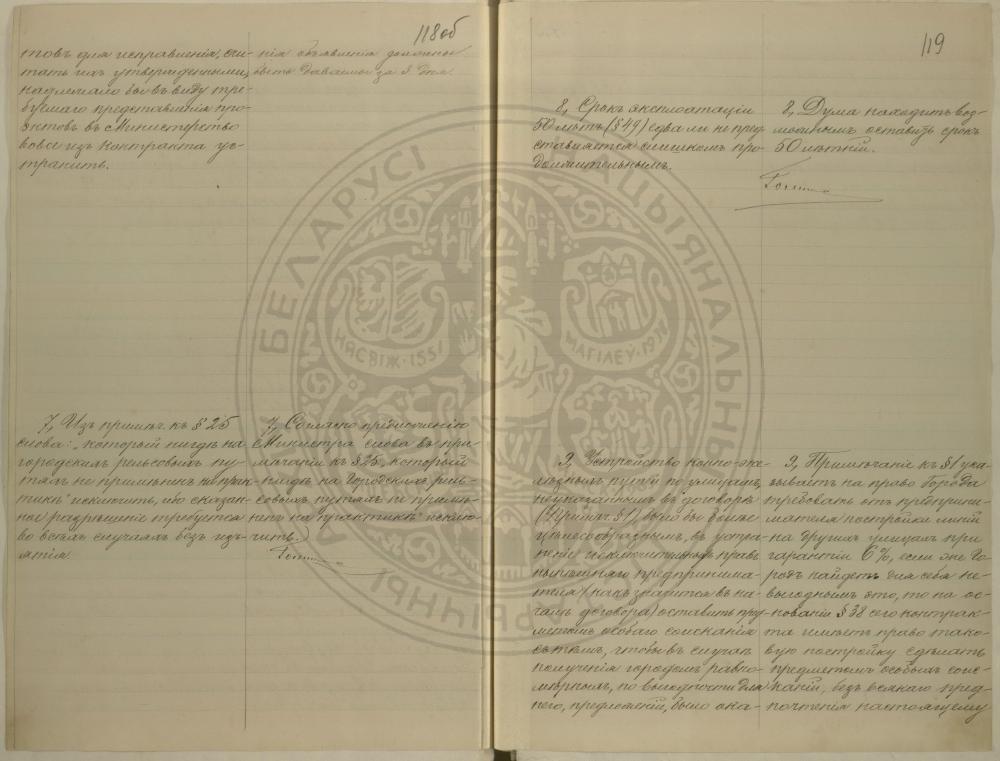 118об
товъ для исправленія, счи-
тать ихъ утвержденными,
надлежало бы въ виду тре-
буемаго представленія про-
эктовъ въ Министерство
вовсе изъ контракта ус-
транить.
нія объявленія должны
быть даваемы за 3 дня
7, Изъ примѣч. къ § 25
слова: "который нигдѣ на
городскихъ рельсовыхъ пу-
тяхъ не примѣненъ на прак-
тикѣ" исключить, ибо сказан-
ное разрѣшеніе требуется
во всѣхъ случаяхъ безъ изъ-
ятія.
7, Согласно предложенію
Министра слова въ при-
мѣчаніи къ § 25, который
нигдѣ на городскихъ рель-
совыхъ путяхъ не примѣ-
ненъ на практикѣ" исклю-
чить.
119
8, Срокъ эксплоатаціи
50 лѣтъ (§ 49) едва ли не пред-
ставляется слишкомъ про-
должительнымъ.
8, Дума находитъ воз-
можнымъ оставить срокъ
50 лѣтній.
9, Устройство конно-же-
лѣзныхъ путей по улицамъ,
неуказаннымъ въ договорѣ
(Примѣч. § 1) было бы болѣе
цѣлесообразнымъ, въ устра-
неніе исключительныхъ правъ
нынѣшняго предпринима-
теля (какъ значится въ на-
чалѣ договора) оставить пред-
метомъ особаго соисканія
съ тѣмъ, чтобы въ случаѣ
полученія городомъ равно-
мѣрныхъ, по выгодности для
него, предложеній, было ока-
9, Примѣчаніе къ § 1 ука-
зываетъ на право города
требовать отъ предприни-
мателя постройки линій
на другихъ улицахъ при
гарантіи 6%, если же Го-
родъ найдетъ для себя не-
выгоднымъ это, то на ос-
нованіи § 38 сего контрак-
та имѣетъ право тако-
вую постройку сдѣлать
предметомъ особыхъ соис-
каній, безъ всякаго пред-
почтенія настоящему
БЕЛАРУСІ
НАЦЫЯНАЛЬНЫ
НЯСВІЖ·155
МАГІЛЕЎ·19